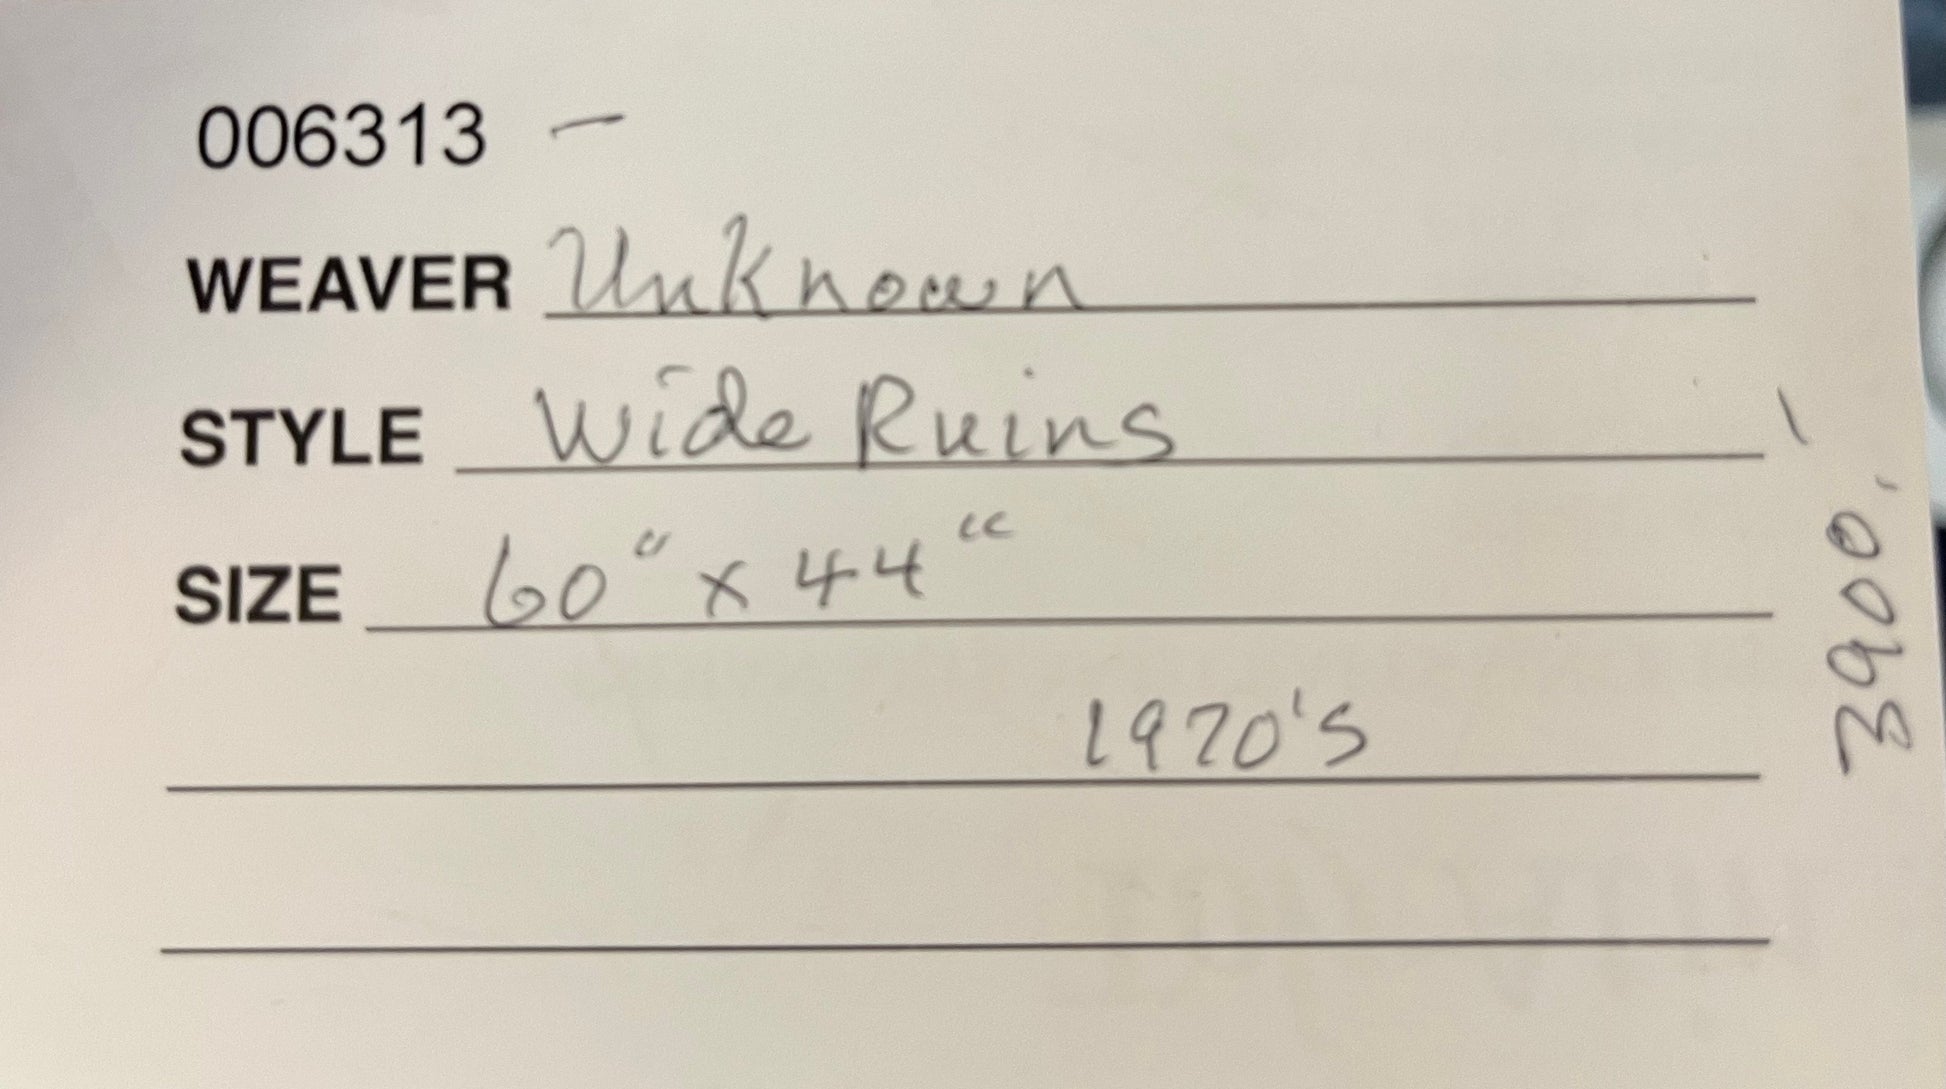 006313 –
WEAVER Unknown
STYLE Wide Ruins
SIZE 60" x 44"
1970's
3900.